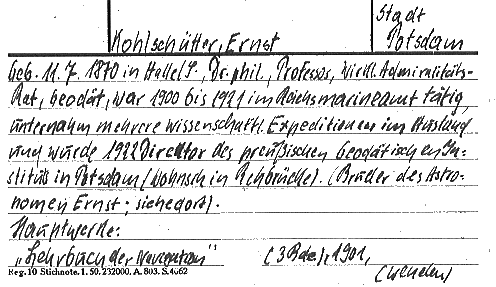 Stadt
Kohlschütter, Ernst Potsdam
geb. 11.7.1870 in Halle/S., Dr. phil., Professor, Wirkl. Admiralitäts-
Rat, Geodät, war 1900 bis 1921 im Reichsmarineamt tätig,
unternahm mehrere wissenschaftl. Expeditionen im Ausland
und wurde 1922 Direktor des preußischen Geodätischen In-
stituts in Potsdam (wohnh. in Rehbrücke). (Bruder des Astro-
nomen Ernst; siehe dort).
Hauptwerke:
„Lehrbuch der Navigation" (3 Bde), 1901,
Reg. 10 Stichnote. 1. 50. 232000. A. 803. S. 4062
(wenden)